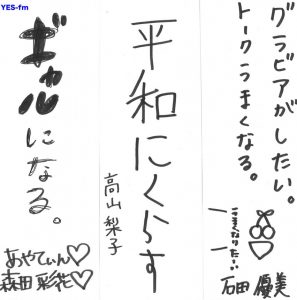 YES-fm
グラビアがしたい。
トークうまくなる。
うまくなりたーい
石田 優美
平和にくらす
高山梨子
ギャル
になる。
あやてぃん♡
森田 彩花♡